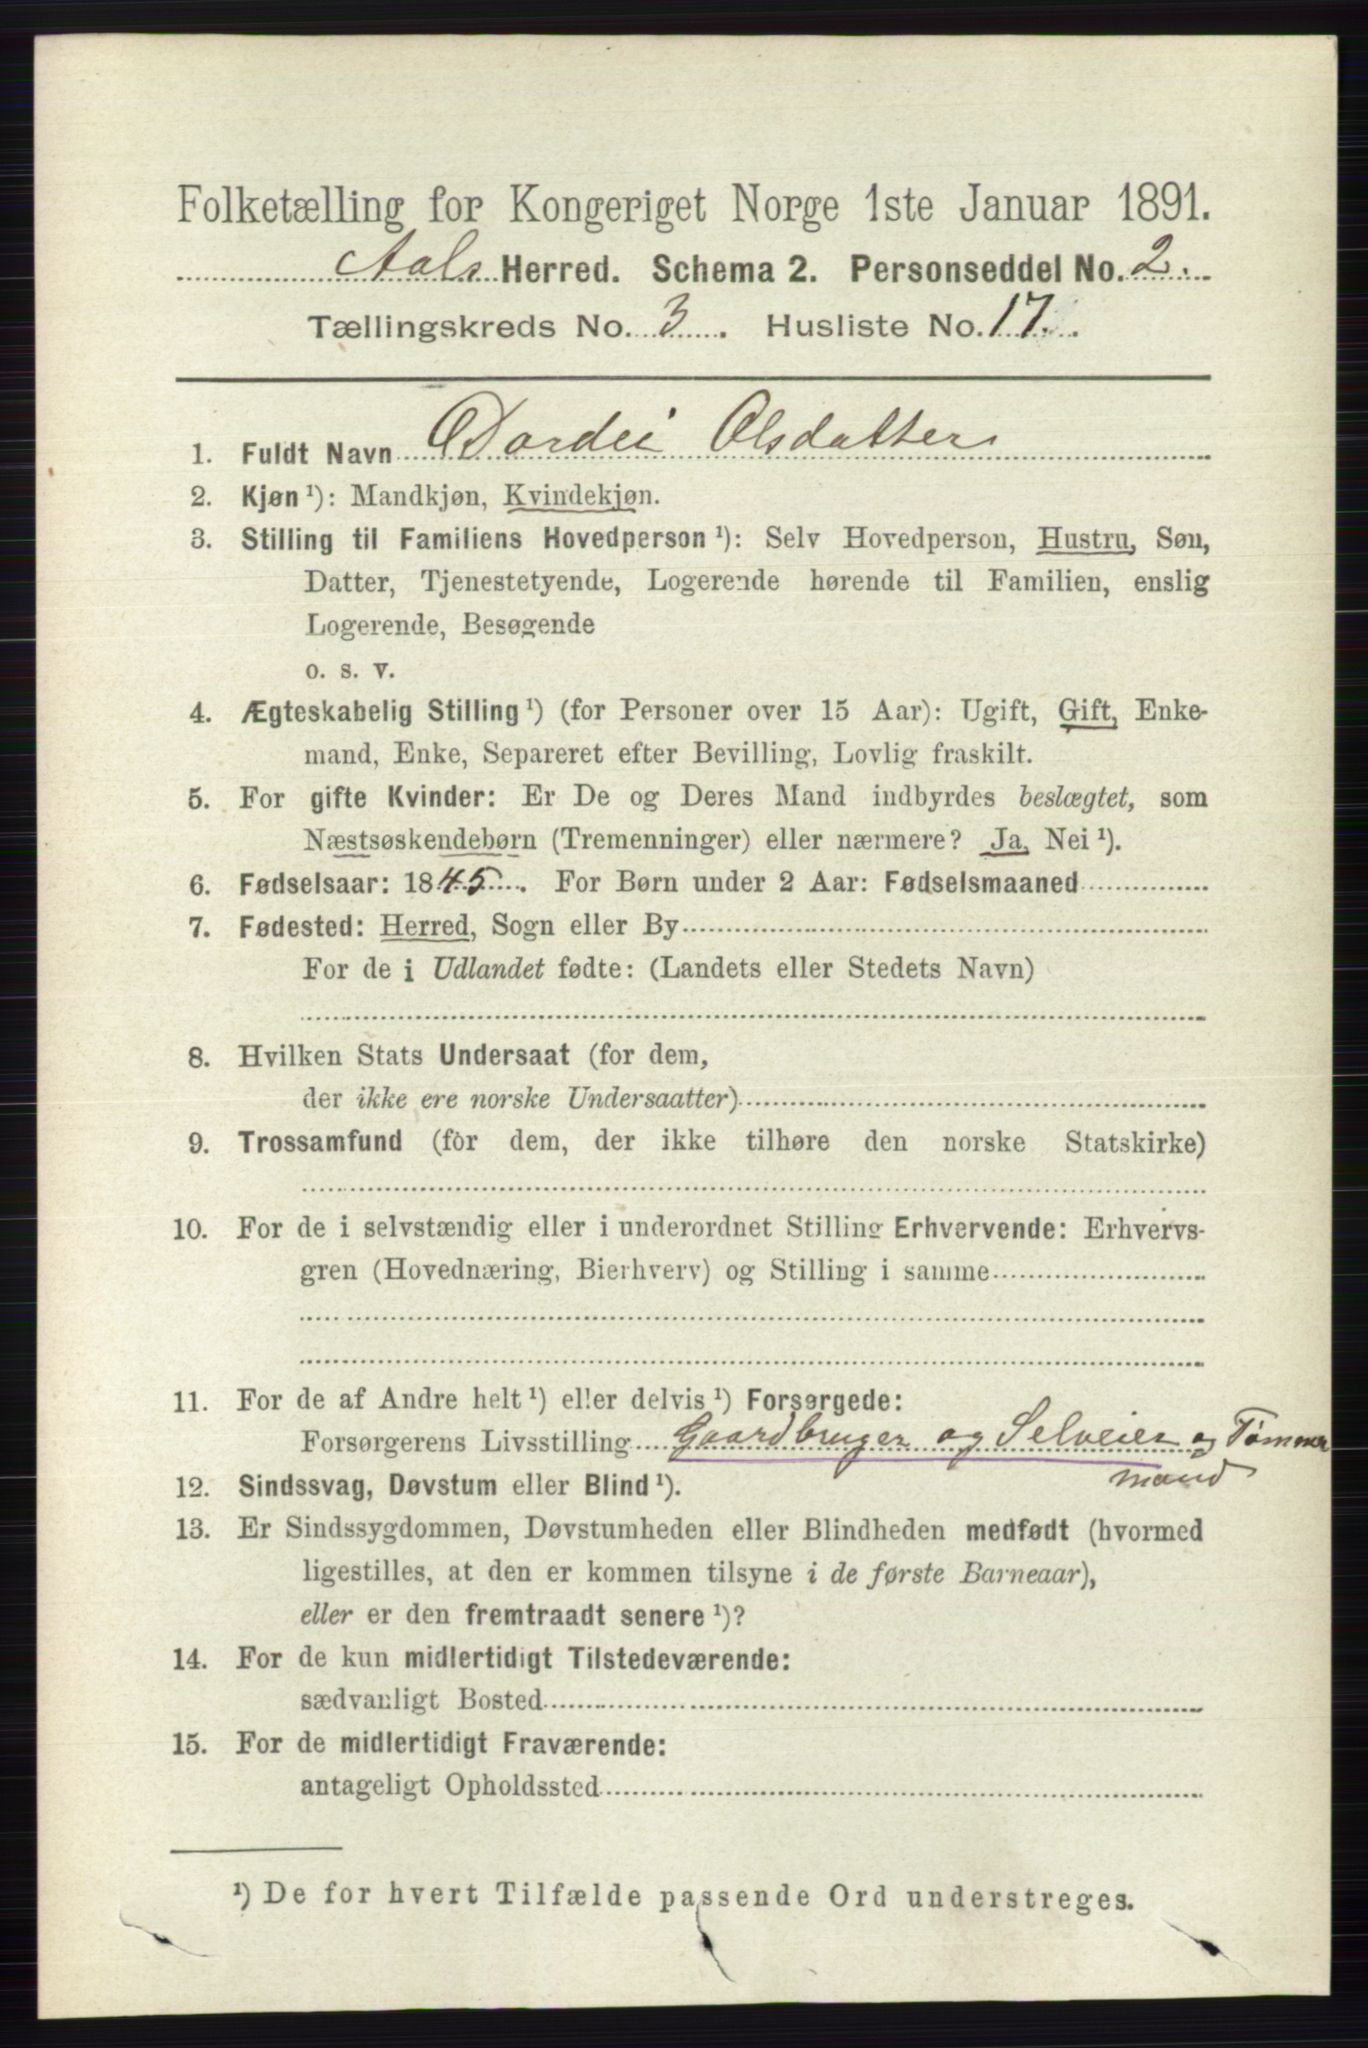 Folketælling for Kongeriget Norge 1ste Januar 1891.
Aals Herred. Schema 2. Personseddel No. 2.
Tællingskreds No. 3. Husliste No. 17.
1. Fuldt Navn Dordei Olsdatter
2. Kjøn ¹): Mandkjøn, Kvindekjøn.
3. Stilling til Familiens Hovedperson ¹): Selv Hovedperson, Hustru, Søn,
Datter, Tjenestetyende, Logerende hørende til Familien, enslig
Logerende, Besøgende
o. s. v.
4. Ægteskabelig Stilling ¹) (for Personer over 15 Aar): Ugift, Gift, Enke-
mand, Enke, Separeret efter Bevilling, Lovlig fraskilt.
5. For gifte Kvinder: Er De og Deres Mand indbyrdes beslægtet, som
Næstsøskendebørn (Tremenninger) eller nærmere? Ja, Nei ¹).
6. Fødselsaar: 1845. For Børn under 2 Aar: Fødselsmaaned
7. Fødested: Herred, Sogn eller By
For de i Udlandet fødte: (Landets eller Stedets Navn)
8. Hvilken Stats Undersaat (for dem,
der ikke ere norske Undersaatter)
9. Trossamfund (for dem, der ikke tilhøre den norske Statskirke)
10. For de i selvstændig eller i underordnet Stilling Erhvervende: Erhvervs-
gren (Hovednæring, Bierhverv) og Stilling i samme
11. For de af Andre helt ¹) eller delvis ¹) Forsørgede:
Forsørgerens Livsstilling Gaardbruger og Selveier og Tømmer
mand
12. Sindssvag, Døvstum eller Blind ¹).
13. Er Sindssygdommen, Døvstumheden eller Blindheden medfødt (hvormed
ligestilles, at den er kommen tilsyne i de første Barneaar),
eller er den fremtraadt senere ¹)?
14. For de kun midlertidigt Tilstedeværende:
sædvanligt Bosted
15. For de midlertidigt Fraværende:
antageligt Opholdssted
¹) De for hvert Tilfælde passende Ord understreges.